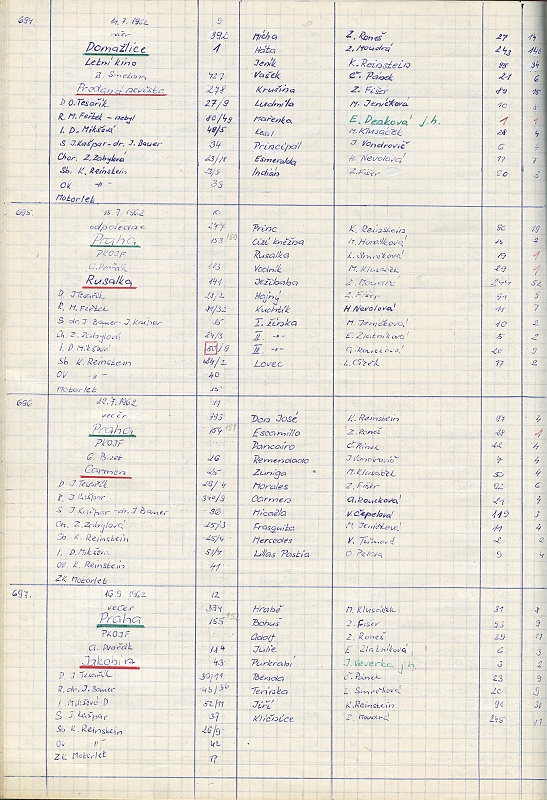 694 14.7.1962 9
večer 392 Mícha Z. Roneš 27 14
Domažlice 1 Háta Z. Moudrá 243
Letní kino Jeník K. Reinstein 95 34
B. Smetana 427 Vašek Č. Pánek 21 6
Prodaná nevěsta 278 Krušina Z. Fišer 89 15
D O. Tesařík 27/9 Ludmila M. Jeníčková 10
R. M. Feřtek - nebyl 10/49 Mařenka E. Deáková j.h. 1 1
I. D. Mikšová 48/5 Kecal M. Klusáček 28 4
S J. Kašpar - dr. J. Bauer 34 Principál J. Vondrovič 6 4
Chor. Z. Zabylová 23/18 Esmeralda H. Nevolová 17 7
Sb. K. Reinstein Indián Z. Fišer 90 3
OV -"- 39
Motorlet
695 15.7.1962 10
odpoledne 247 Princ K. Reinstein 96 19
Praha 153 150 Cizí kněžna M. Horáčková 15 2
PKOJF Rusalka L. Smrčková 19 1
A. Dvořák 113 Vodník M. Klusáček 29 1
Rusalka 141 Ježibaba Z. Moudrá 244 52
D. J Tesařík Hajný Z. Fišer 91 5
R. M. Feřtek Kuchtík H. Nevolová 18 7
S dr. J. Bauer - J. Kašpar I. žínka M. Jeníčková 10 2
Ch. Z. Zabylová 24/3 II -"- E. Zlatníková 5 2
I. D. Mikšová 50/9 III -"- A. Roučková 20 9
Sb. K. Reinstein 24/2 Lovec L. Čížek 17 2
OV -"- 40
Motorlet 15
696 22.7.1962 11
večer 393 Don José K. Reinstein 97 2
Praha 154 151 Escamillo Z. Roneš 28 1
PKOJF Dancairo Č. Pánek 22 4
G. Bizet 26 Remendado J. Vondrovič 7 4
Carmen 25 Zuniga M. Klusáček 30 4
D J. Tesařík 29/4 Morales Z. Fišer 92 6
R. J. Kašpar Carmen A. Roučková 21 4
S J. Kašpar - dr. J. Bauer 36 Micaëla V. Čepelová 119 3
Ch. Z. Zabylová 25/3 Frasquita M. Jeníčková 11 4
Sb K. Reinstein 25/4 Mercedes V. Tůmová 2 2
I. D. Mikšová 51/7 Lillas Pastia O. Petera 9 4
OV K. Reinstein 41
ZK Motorlet
697. 16.9.1962 12
večer 394 Hrabě M. Klusáček 31 8
Praha 155 152 Bohuš Z. Fišer 93 9
PKOJF Adolf Z. Roneš 29 11
A. Dvořák 114 Julie E. Zlatníková 6 3
Jakobín 43 Purkrabí J. Veverka j.h. 3 2
D J Tesařík 30/11 Benda Č. Pánek 23 9
R. dr. J. Bauer Terinka L. Smrčková 20 9
I Mikšová D 52/11 Jiří K. Reinstein 98
S J. Kašpar 37 Klíčnice Z. Moudrá 245 11
Sb. K. Reinstein 26/9
OV -"- 42
ZK Motorlet 17